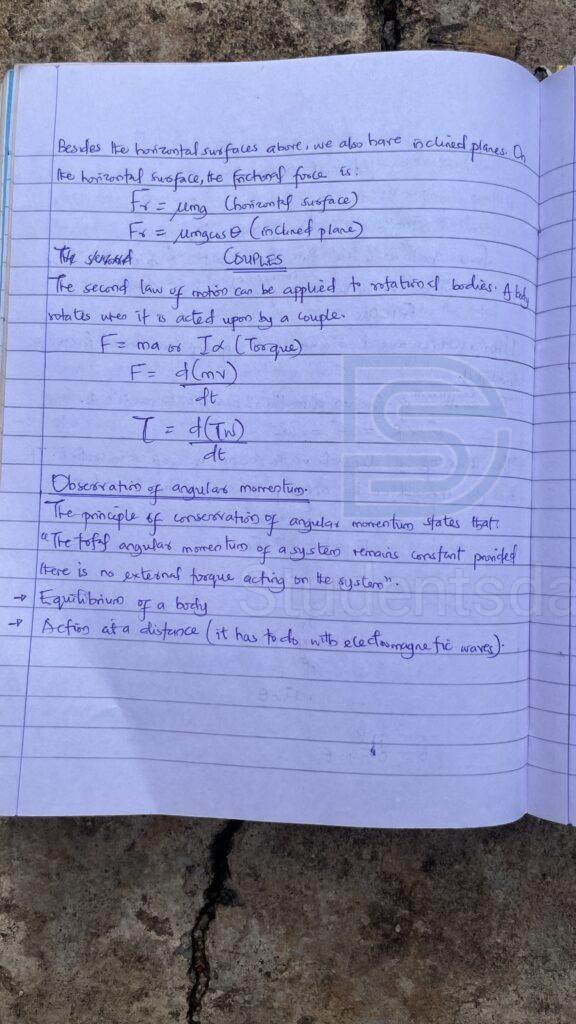 Besides the horizontal surfaces above, we also have inclined planes. On
the horizontal surface, the frictional force is:
Fr = μmg (horizontal surface)
Fr = μmgcosθ (inclined plane)
The
COUPLES
The second law of motion can be applied to rotational bodies. A body
rotates when it is acted upon by a couple.
F = ma or Iα (Torque)
F = d(mv)
dt
τ = d(Iw)
dt
Observation of angular momentum.
The principle of conservation of angular momentum states that:
"The total angular momentum of a system remains constant provided
there is no external torque acting on the system".
→ Equilibrium of a body
→ Action at a distance (it has to do with electromagnetic waves).
studentsda